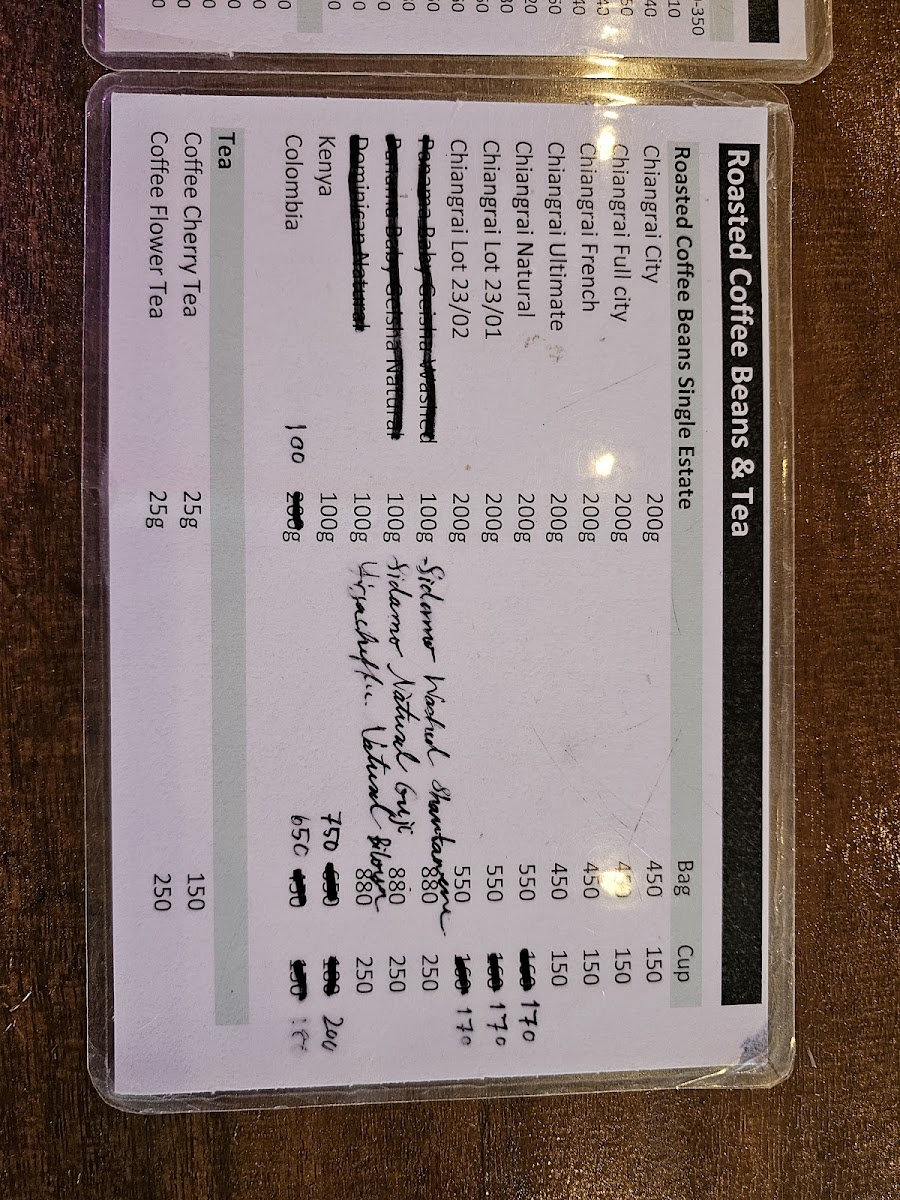 Roasted Coffee Beans & Tea
Roasted Coffee Beans Single Estate Bag Cup
Chiangrai City 200g 450 150
Chiangrai Full city 200g 450 150
Chiangrai French 200g 450 150
Chiangrai Ultimate 200g 450 150
Chiangrai Natural 200g 550 160 170
Chiangrai Lot 23/01 200g 550 160 170
Chiangrai Lot 23/02 200g 550 160 170
Panama Baby Geisha Washed 100g Sidamo Washed 880 250
Panama Baby Geisha Natural 100g Sidamo Natural Guji 880 250
Dominican Natural 100g Natural 880 250
Kenya 100g 750 200
Colombia 100 g 650
Tea
Coffee Cherry Tea 25g 150
Coffee Flower Tea 25g 250